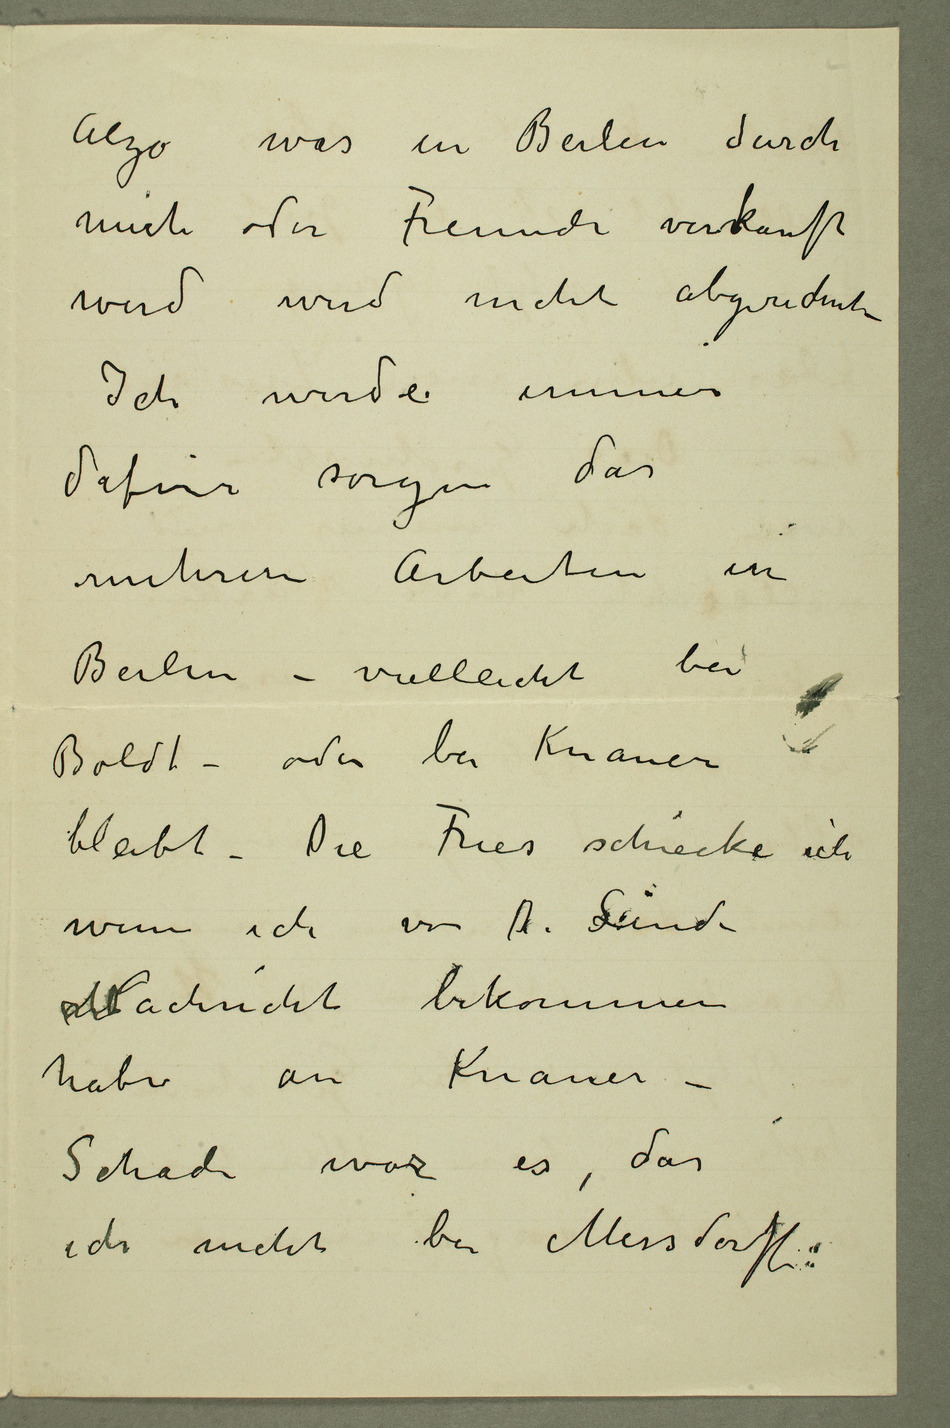 Alzo was in Berlin durch
mich oder Freunde verkauft
wird wird nicht abgeredent
Ich werde immer
dafür sorgen das
mehrere Arbeiten in
Berlin – vielleicht bei
Boldt – oder bei Knauer
bleibt – Die Fries schiecke ich
wenn ich von D. Linde
Nachricht bekommen
habe an Knauer –
Schade war es, das
ich nicht bei Messdorff: